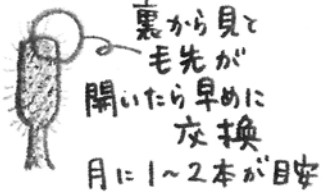 裏から見て
毛先が
開いたら早めに
交換
月に1～2本が目安